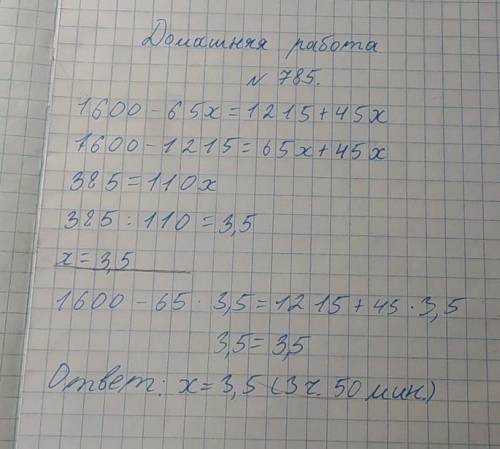 Домашняя работа
№ 785.
1600 - 65х = 1215 + 45х
1600 - 1215 = 65х + 45х
385 = 110х
385 : 110 = 3,5
х = 3,5
1600 - 65 · 3,5 = 1215 + 45 · 3,5
3,5 = 3,5
Ответ: х = 3,5 (3 ч. 50 мин.)